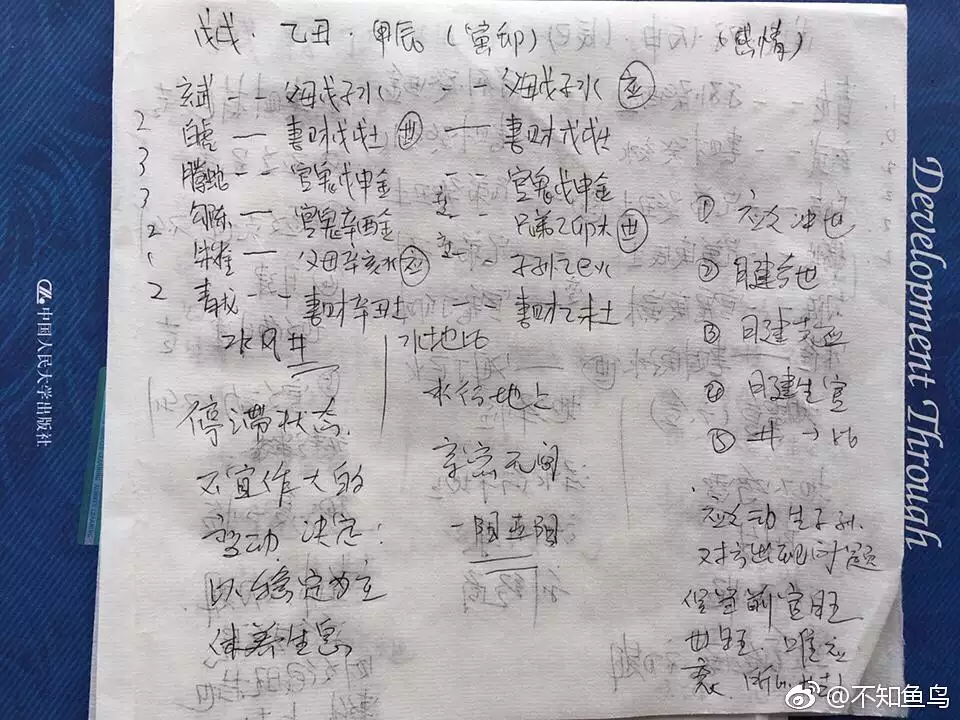 戊戌·乙丑·甲辰(寅卯) (感情)
玄武 -- 父母戊子水 -- 父母戊子水 应
2 白虎 — 妻财戊戌土 世 — 妻财戊戌土
3 腾蛇 -- 官鬼戊申金 -- 官鬼戊申金
3 勾陈 — 官鬼辛酉金 -- 兄弟乙卯木 世
2 朱雀 — 父母辛亥水 应 -- 子孙乙巳火
2 青龙 -- 妻财辛丑土 妻财乙未土
水风井
停滞状态
不宜作大的
变动 决定:
以稳定为主
休养生息
水地比
水行地上
亲密无间
一阳五阴
① 应爻冲世
② 日建合世
③ 日建克应
④ 日建生官
⑤ 井→比
应爻动生子孙.
对方出现问题
官旺
世旺. 唯应
衰.
Development Through
中国人民大学出版社
@不知鱼鸟